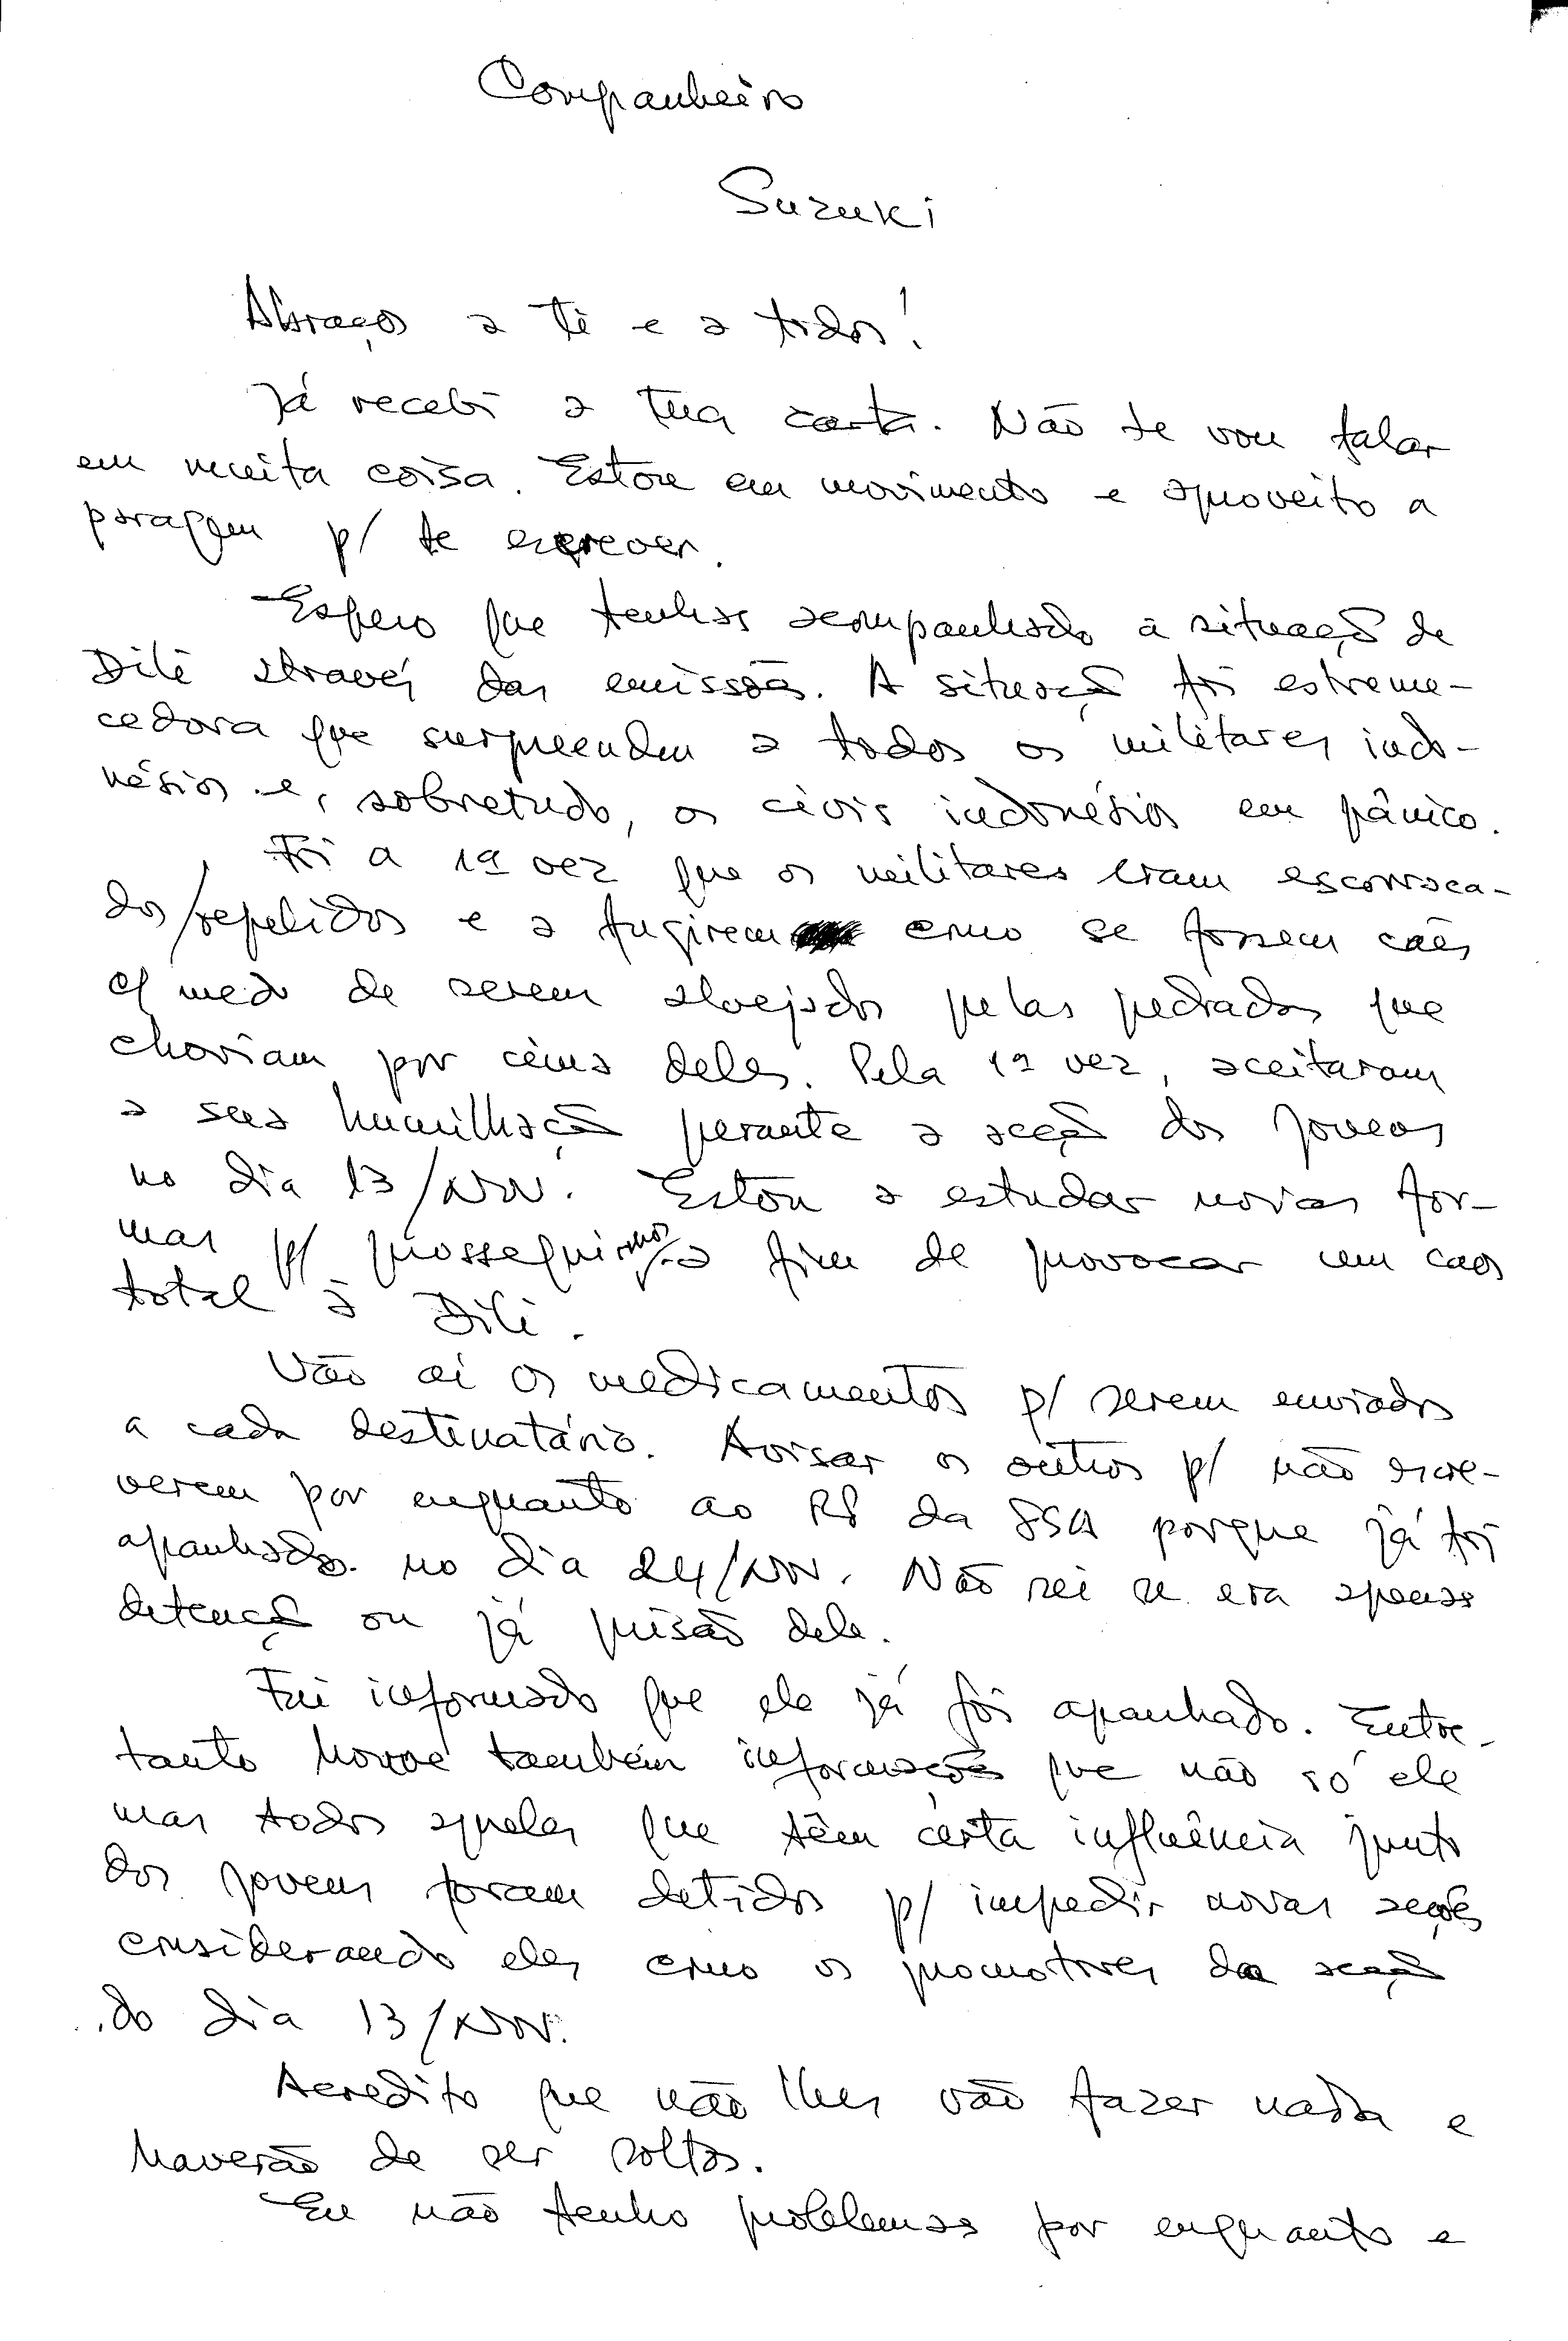 Companheiro
Suzuki
Abraços a ti e a todos!
Já recebi a tua carta. Não te vou falar
em muita coisa. Estou em movimento e aproveito a
paragem p/ te escrever.
Espero que tenhas acompanhado a situação de
Dili através das emissões. A situação foi estreme-
cedora que surpreendeu a todos os militares indo-
nésios e, sobretudo, os civis indonésios em pânico.
Foi a 1ª vez que os militares eram escorraça-
dos/repelidos e a fugirem como se fossem cães
c/ medo de serem alvejados pelas pedradas que
choviam por cima deles. Pela 1ª vez, aceitaram
a sua humilhação perante a acção dos jovens
no dia 13/Nov. Estou a estudar novas for-
mas p/ prosseguirmos a fim de provocar um caos
total a Dili.
Vão aí os medicamentos p/ serem enviados
a cada destinatário. Avisar os outros p/ não escre-
verem por enquanto ao RS da SSA porque já foi
apanhado no dia 24/Nov. Não sei se era apenas
detenção ou já prisão dele.
Fui informado que ele já foi apanhado. Entre-
tanto houve também informações que não só ele
mas todos aqueles que têm certa influência junto
dos jovens foram detidos p/ impedir novas acções
considerando eles como os promotores da acção
do dia 13/Nov.
Acredito que não lhes vão fazer nada e
haverão de ser soltos.
Eu não tenho problemas por enquanto e